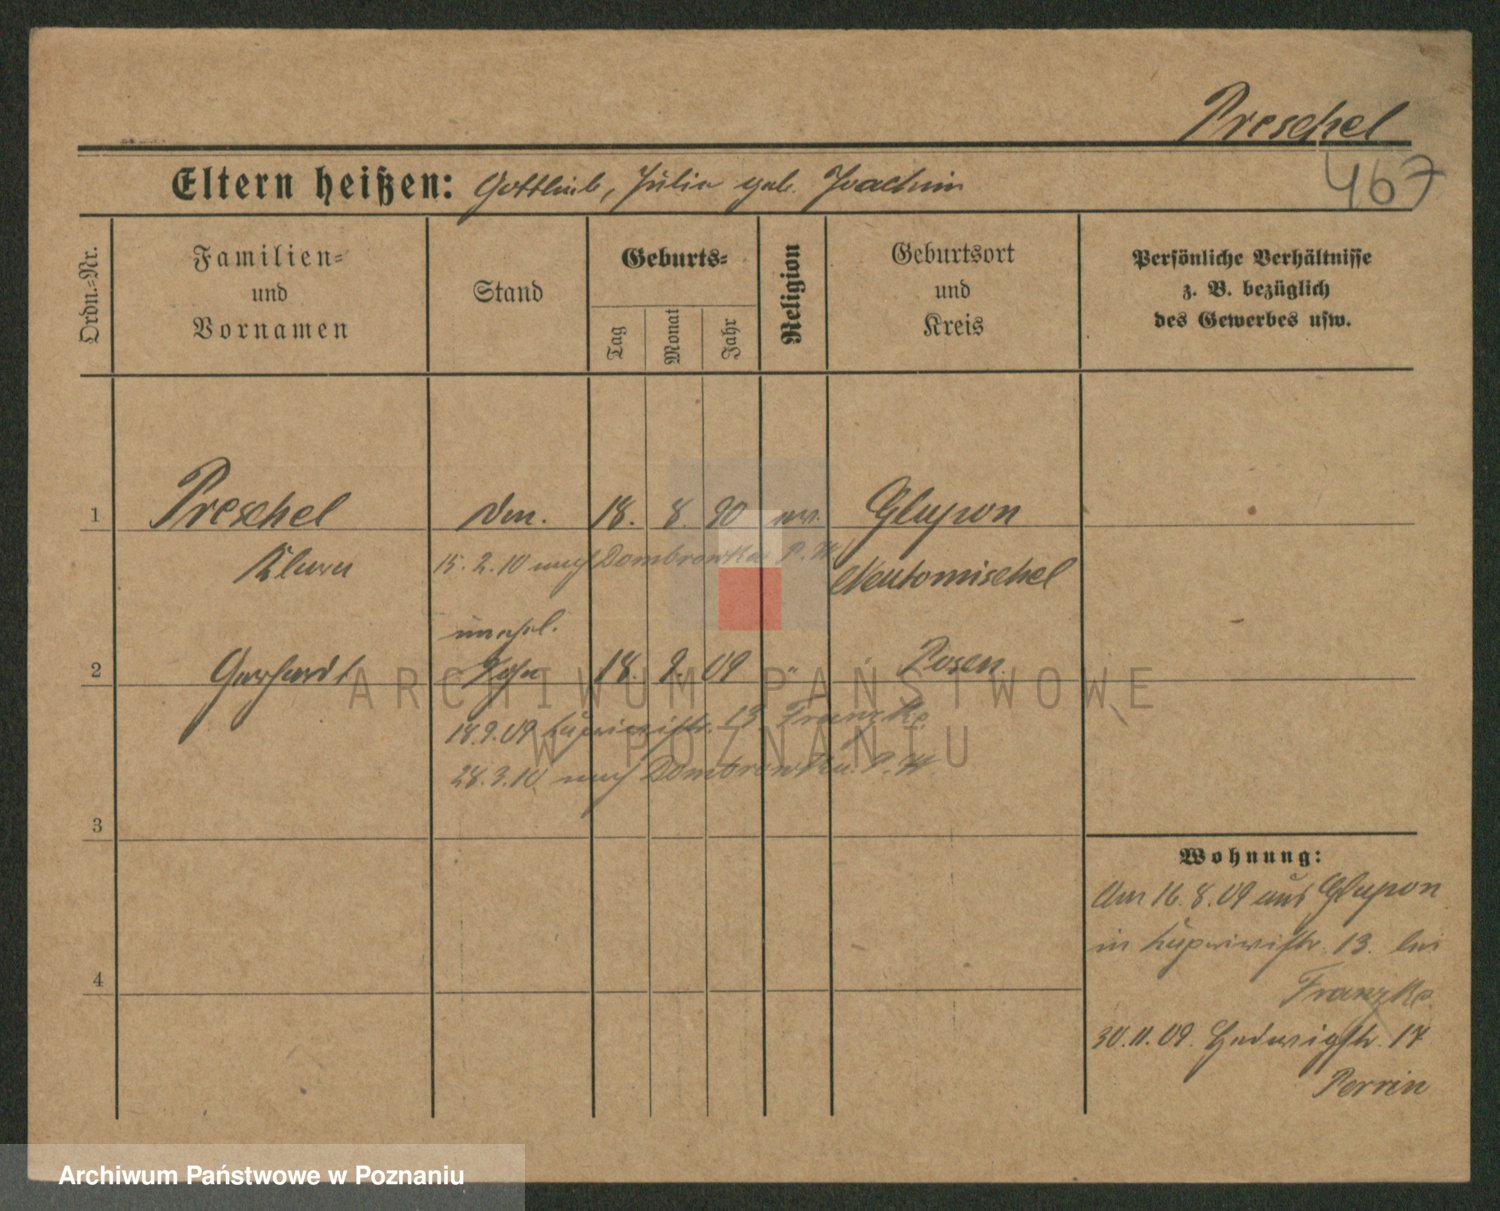 Preschel
467
Eltern heißen: Gottlieb, Julie geb. Joachim
Ordn.-Nr.
Familien-
und
Vornamen
Stand
Geburts-
Tag
Monat
Jahr
Religion
Geburtsort
und
Kreis
Persönliche Verhältnisse
z. B. bezüglich
des Gewerbes usw.
1 Preschel 18. 8. 90 ev. Glupon
Klara 15.2.10 nach Dombrowka P.W. Neutomischel
unehel.
2 Gerhardt Sohn 18. 9. 09 " Posen
18.9.09 13 Franzke
28.3.10 nach Dombrowka P.W.
3
4
Wohnung:
Am 16.8.09 aus Glupon
in 13. bei
Franzke
30.11.09. Hedwigstr. 17
Perrin
ARCHIWUM PAŃSTWOWE
W POZNANIU
Archiwum Państwowe w Poznaniu